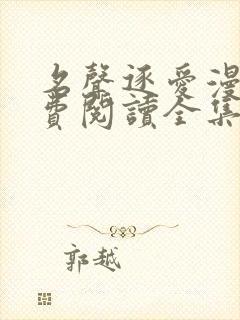 名聲逐愛漫
費閱讀全集
郭越